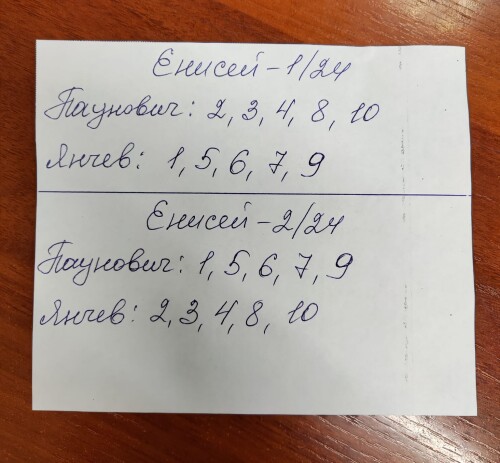 Енисей-1/24
Паунович: 2, 3, 4, 8, 10
Янчев: 1, 5, 6, 7, 9
Енисей-2/24
Паунович: 1, 5, 6, 7, 9
Янчев: 2, 3, 4, 8, 10